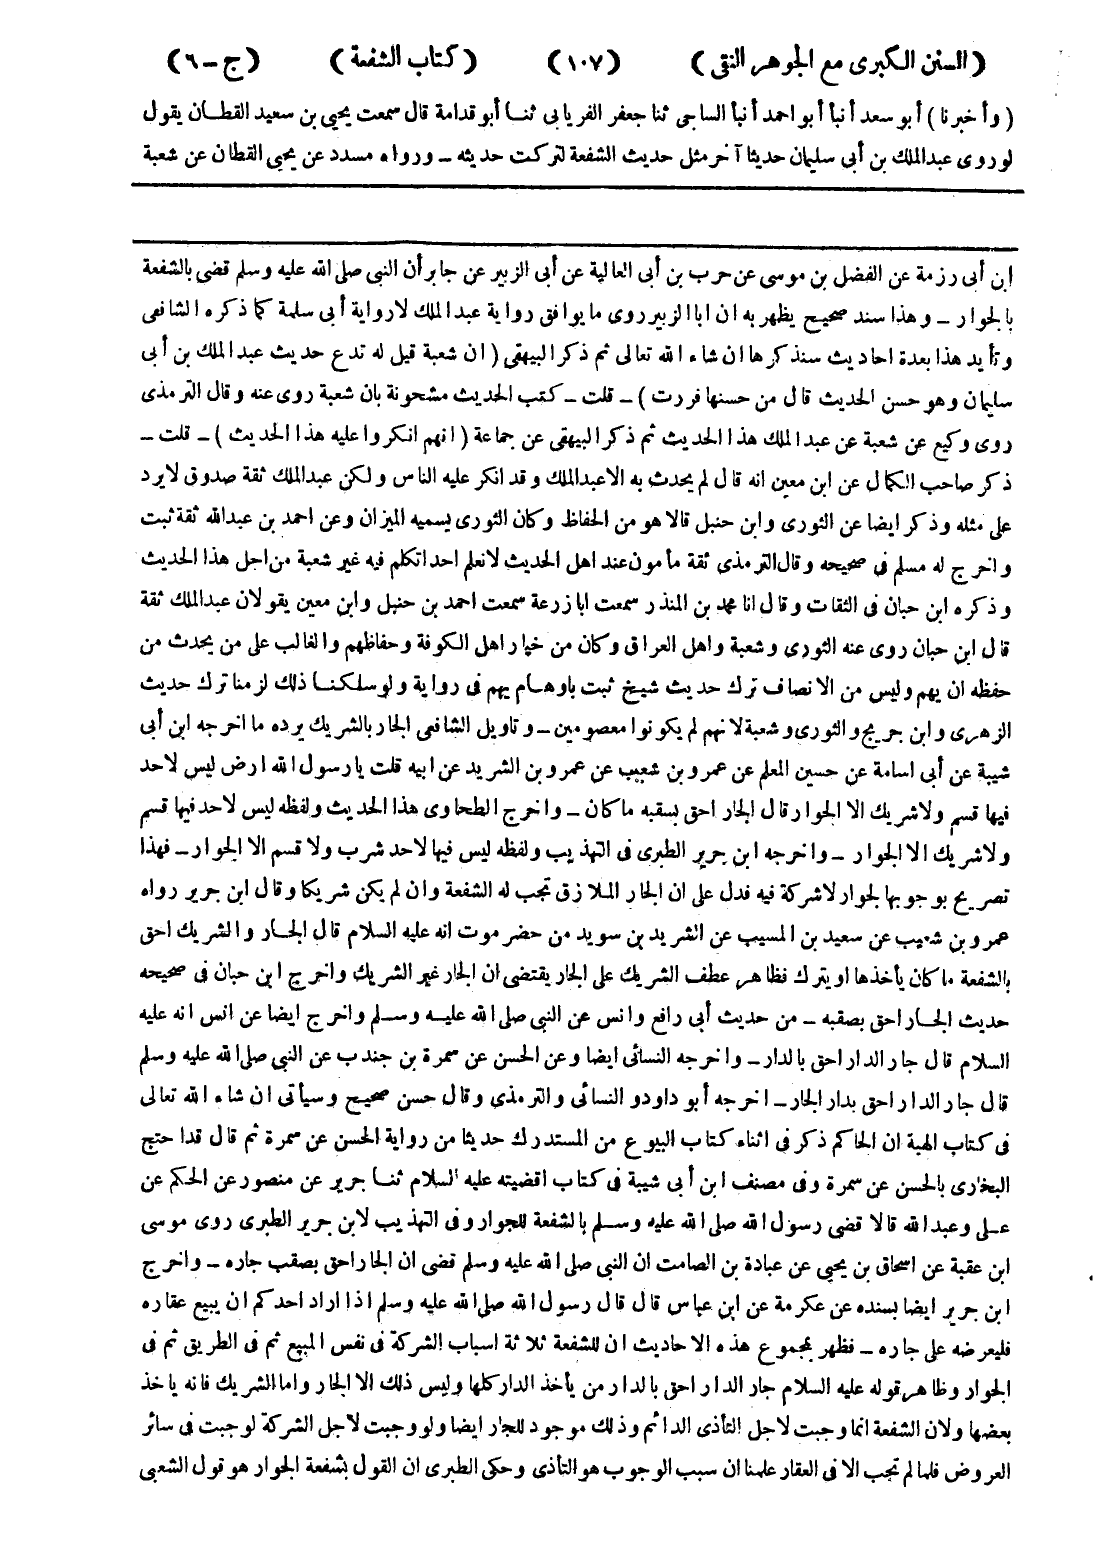 (السنن الكبرى مع الجوهر النقى) (١٠٧) (كتاب الشفعة) (ج-٦)
(وأخبرنا) أبو سعد أنبأ أبو احمد أنبأ الساجى ثنا جعفر الفريابى ثنا أبو قدامة قال سمعت يحيى بن سعيد القطان يقول
لو روى عبدالملك بن أبى سليمان حديثا آخر مثل حديث الشفعة لتركت حديثه - ورواه مسدد عن يحيى القطان عن شعبة
ابن أبى رزمة عن الفضل بن موسى عن حرب بن أبى العالية عن أبى الزبير عن جابر أن النبى صلى الله عليه وسلم قضى بالشفعة
بالجوار - وهذا سند صحيح يظهر به ان ابا الزبير روى ما يوافق رواية عبدالملك لا رواية أبى سلمة كما ذكره الشافعى
وتأيد هذا بعدة احاديث سنذكرها ان شاء الله تعالى ثم ذكر البيهقى (ان شعبة قيل له تدع حديث عبدالملك بن أبى
سليمان وهو حسن الحديث قال من حسنها فررت) - قلت - كتب الحديث مشحونة بان شعبة روى عنه وقال الترمذى
روى وكيع عن شعبة عن عبدالملك هذا الحديث ثم ذكر البيهقى عن جماعة (انهم انكروا عليه هذا الحديث) - قلت -
ذكر صاحب الكمال عن ابن معين انه قال لم يحدث به الا عبدالملك وقد انكر عليه الناس ولكن عبدالملك ثقة صدوق لا يرد
على مثله وذكر ايضا عن الثورى وابن حنبل قالا هو من الحفاظ وكان الثورى يسميه الميزان وعن احمد بن عبدالله ثقة ثبت
واخرج له مسلم فى صحيحه وقال الترمذى ثقة مأمون عند اهل الحديث لا نعلم احدا تكلم فيه غير شعبة من اجل هذا الحديث
وذكره ابن حبان فى الثقات وقال انا محمد بن المنذر سمعت ابا زرعة سمعت احمد بن حنبل وابن معين يقولان عبدالملك ثقة
قال ابن حبان روى عنه الثورى وشعبة واهل العراق وكان من خيار اهل الكوفة وحفاظهم والغالب على من يحدث من
حفظه ان يهم وليس من الانصاف ترك حديث شيخ ثبت باوهام يهم فى رواية ولو سلكنا ذلك لزمنا ترك حديث
الزهرى وابن جريج والثورى وشعبة لانهم لم يكونوا معصومين - وتاويل الشافعى الجار بالشريك يرده ما اخرجه ابن أبى
شيبة عن أبى اسامة عن حسين المعلم عن عمرو بن شعيب عن عمرو بن الشريد عن ابيه قلت يا رسول الله ارض ليس لاحد
فيها قسم ولا شريك الا الجوار قال الجار احق بسقبه ما كان - واخرج الطحاوى هذا الحديث ولفظه ليس لاحد فيها قسم
ولا شريك الا الجوار - واخرجه ابن جرير الطبرى فى التهذيب ولفظه ليس فيها لاحد شرب ولا قسم الا الجوار - فهذا
تصريح بوجوبها لجوار لا شركة فيه فدل على ان الجار الملازق تجب له الشفعة وان لم يكن شريكا وقال ابن جرير رواه
عمرو بن شعيب عن سعيد بن المسيب عن الشريد بن سويد من حضرموت انه عليه السلام قال الجار والشريك احق
بالشفعة ما كان يأخذها او يترك فظاهر عطف الشريك على الجار يقتضى ان الجار غير الشريك واخرج ابن حبان فى صحيحه
حديث الجار احق بصقبه - من حديث أبى رافع وانس عن النبى صلى الله عليه وسلم واخرج ايضا عن انس انه عليه
السلام قال جار الدار احق بالدار - واخرجه النسائى ايضا وعن الحسن عن سمرة بن جندب عن النبى صلى الله عليه وسلم
قال جار الدار احق بدار الجار - اخرجه أبو داود والنسائى والترمذى وقال حسن صحيح وسيأتى ان شاء الله تعالى
فى كتاب الهبة ان الحاكم ذكر فى اثناء كتاب البيوع من المستدرك حديثا من رواية الحسن عن سمرة ثم قال قد احتج
البخارى بالحسن عن سمرة وفى مصنف ابن أبى شيبة فى كتاب اقضيته عليه السلام ثنا جرير عن منصور عن الحكم عن
على وعبدالله قالا قضى رسول الله صلى الله عليه وسلم بالشفعة للجوار وفى التهذيب لابن جرير الطبرى روى موسى
ابن عقبة عن اسحاق بن يحيى عن عبادة بن الصامت ان النبى صلى الله عليه وسلم قضى ان الجار احق بصقب جاره - واخرج
ابن جرير ايضا بسنده عن عكرمة عن ابن عباس قال قال رسول الله صلى الله عليه وسلم اذا اراد احدكم ان يبيع عقاره
فليعرضه على جاره - فظهر بمجموع هذه الاحاديث ان للشفعة ثلاثة اسباب الشركة فى نفس المبيع ثم فى الطريق ثم فى
الجوار وظاهر قوله عليه السلام جار الدار احق بالدار من يأخذ الدار كلها وليس ذلك الا الجار واما الشريك فانه ياخذ
بعضها ولان الشفعة انما وجبت لاجل التأذى الدائم وذلك موجود للجار ايضا ولو وجبت لاجل الشركة لوجبت فى سائر
العروض فلما لم تجب الا فى العقار علمنا ان سبب الوجوب هو التأذى وحكى الطبرى ان القول بشفعة الجوار هو قول الشعبى